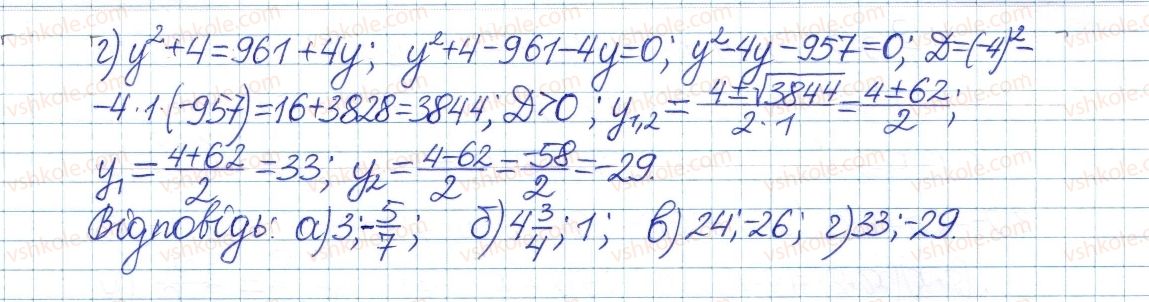 г) y²+4=961+4y; y²+4-961-4y=0; y²-4y-957=0; D=(-4)²-
-4·1·(-957)=16+3828=3844; D>0; y₁,₂ = (4±√3844)/(2·1) = (4±62)/2;
y₁ = (4+62)/2 = 33; y₂ = (4-62)/2 = -58/2 = -29.
Відповідь: а) 3; -5/7; б) 4 3/4; 1; в) 24; -26; г) 33; -29.
vshkole.com